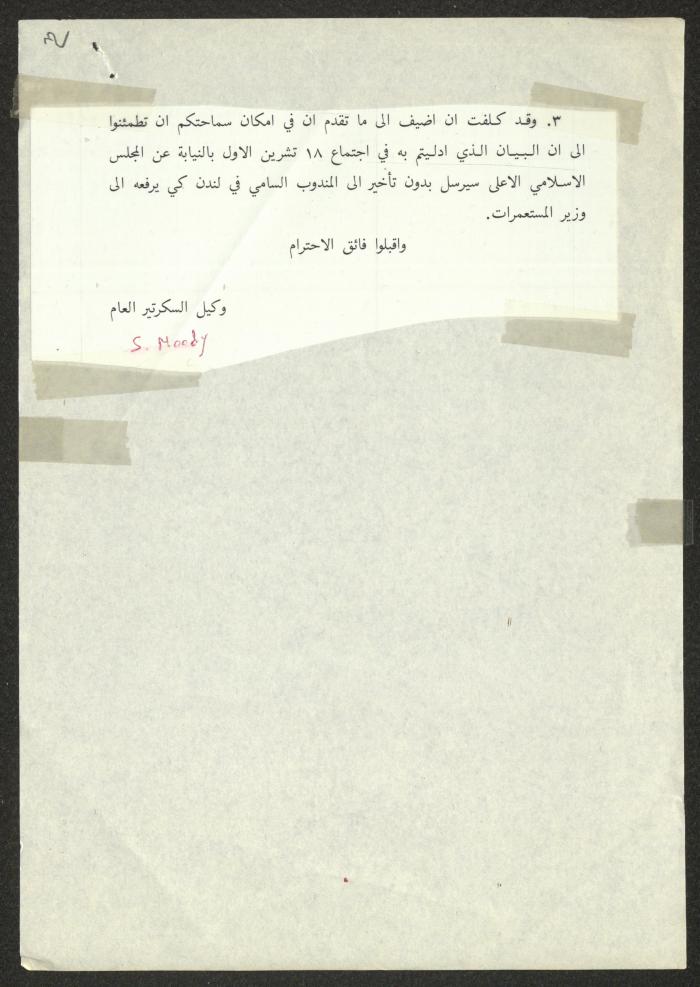 ٣. وقد كلفت ان اضيف الى ما تقدم ان في امكان سماحتكم ان تطمئنوا
الى ان البيان الذي ادليتم به في اجتماع ١٨ تشرين الاول بالنيابة عن المجلس
الاسلامي الاعلى سيرسل بدون تأخير الى المندوب السامي في لندن كي يرفعه الى
وزير المستعمرات.
واقبلوا فائق الاحترام
وكيل السكرتير العام
S. Moody